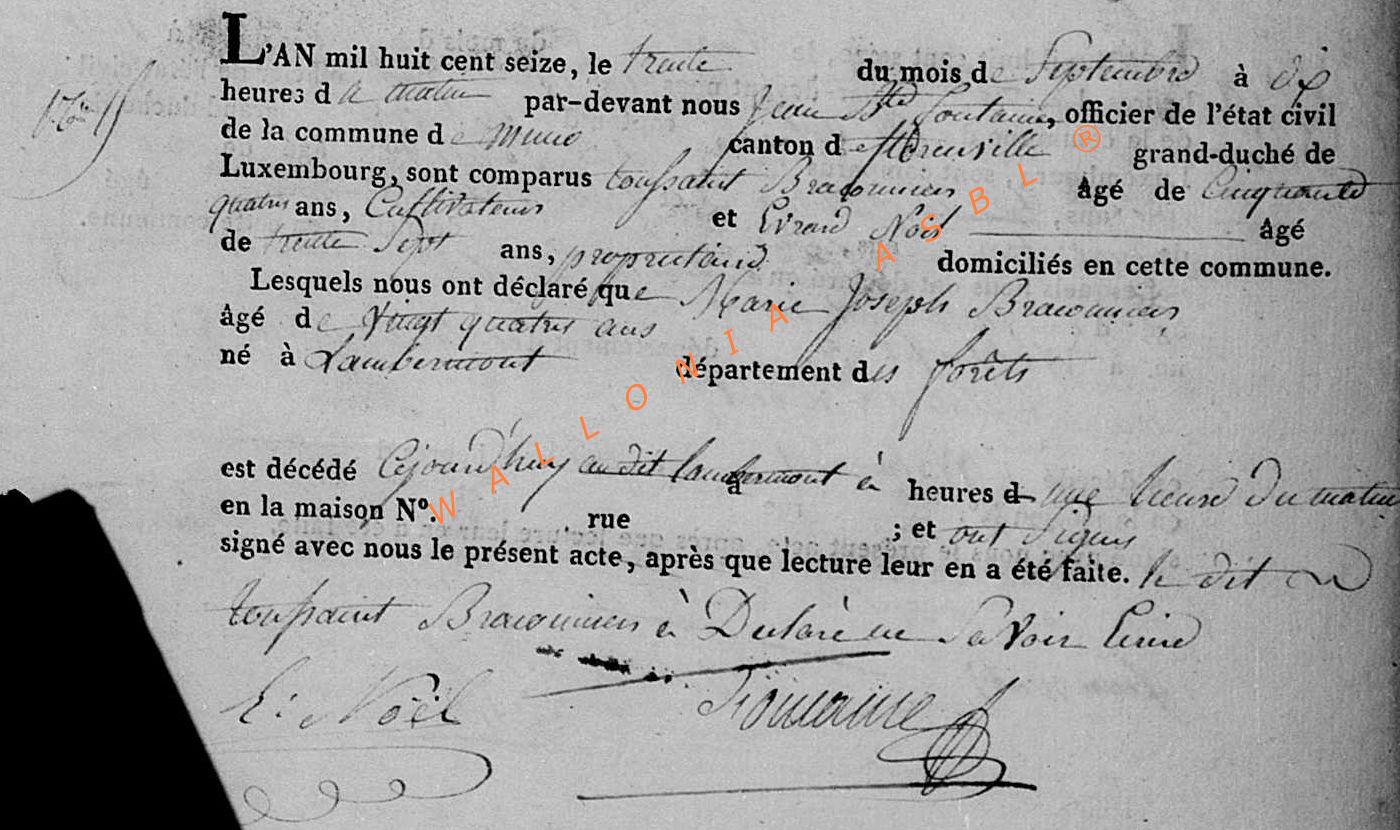 L'AN mil huit cent seize, le trente du mois de Septembre à dix
heures du matin par-devant nous Jean Bte fontaine, officier de l'état civil
de la commune de muno canton de florenville grand-duché de
Luxembourg, sont comparus toussaint Braconnier âgé de Cinquante
quatre ans, Cultivateur et Evrard Noël âgé
de trente Sept ans, proprietaire domiciliés en cette commune.
Lesquels nous ont déclaré que Marie Joseph Braconnier
âgé de Vingt quatre ans
né à Lambermont département des forêts
est décédé Cejourd'huy au dit lambermont à heures d une heure du matin
en la maison Nº. rue ; et ont Signé
signé avec nous le présent acte, après que lecture leur en a été faite. le dit
toussaint Braconnier à Declaré ne Savoir Ecrire
E: Noël Fontaine
WALLONIA ASBL ®